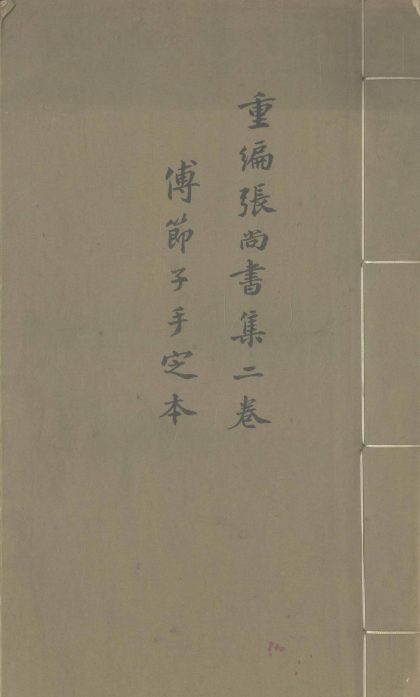 重编張尚書集二卷
傅節子手定本